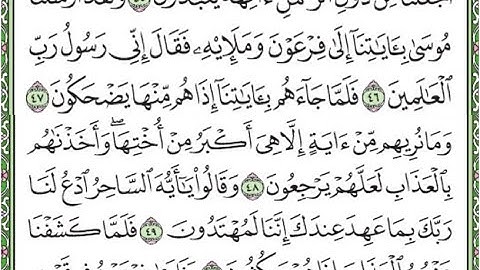 مُوسَىٰ بِـَٔايَٰتِنَآ إِلَىٰ فِرْعَوْنَ وَمَلَإِيْهِۦ فَقَالَ إِنِّى رَسُولُ رَبِّ
ٱلْعَٰلَمِينَ ٤٦ فَلَمَّا جَآءَهُم بِـَٔايَٰتِنَآ إِذَا هُم مِّنْهَا يَضْحَكُونَ ٤٧
وَمَا نُرِيهِم مِّنْ ءَايَةٍ إِلَّا هِىَ أَكْبَرُ مِنْ أُخْتِهَا ۖ وَأَخَذْنَٰهُم
بِٱلْعَذَابِ لَعَلَّهُمْ يَرْجِعُونَ ٤٨ وَقَالُوا۟ يَٰٓأَيُّهَ ٱلسَّاحِرُ ٱدْعُ لَنَا
رَبَّكَ بِمَا عَهِدَ عِندَكَ إِنَّنَا لَمُهْتَدُونَ ٤٩ فَلَمَّا كَشَفْنَا